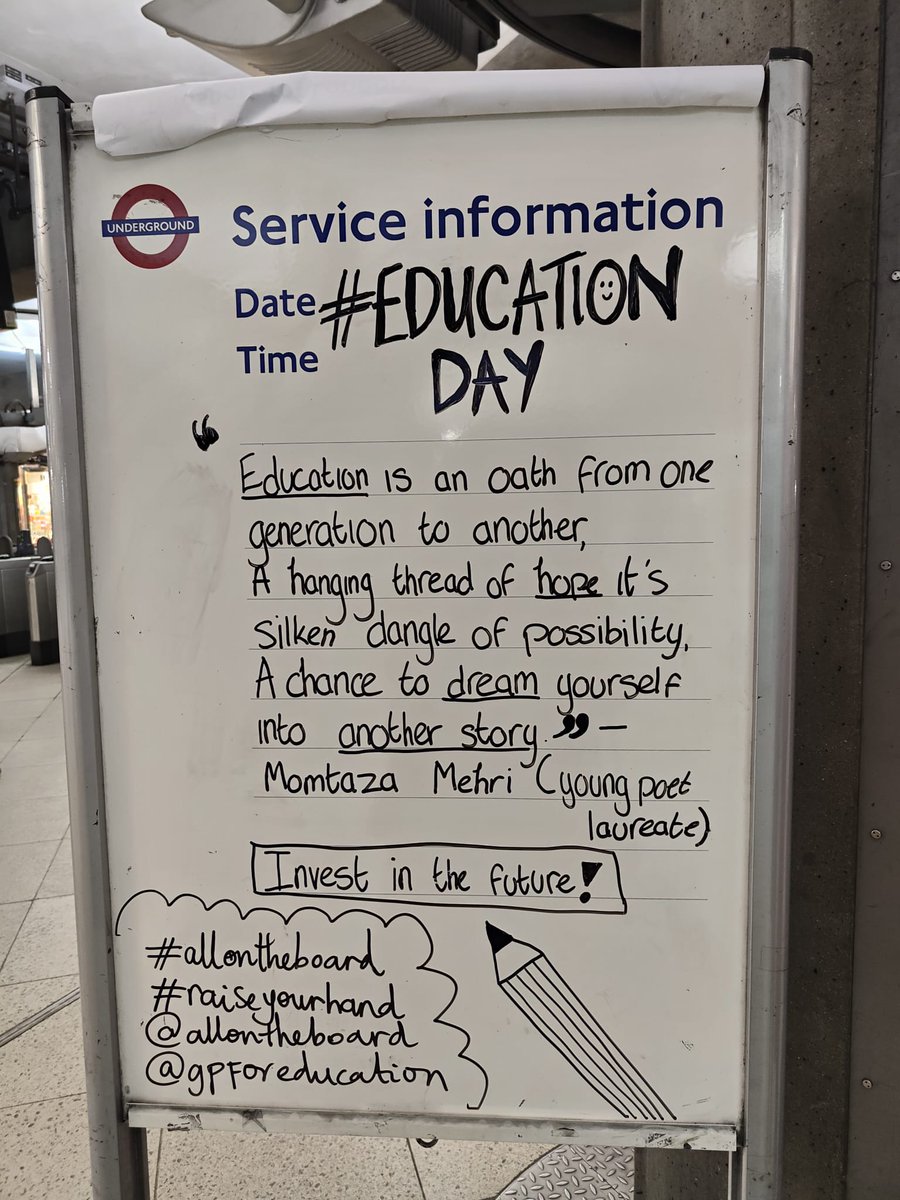 UNDERGROUND
Service information
Date #EDUCATION
Time DAY
“
Education is an oath from one
generation to another,
A hanging thread of hope it's
silken dangle of possibility,
A chance to dream yourself
into another story.” —
Momtaza Mehri (young poet
laureate)
Invest in the future!
#allontheboard
#raiseyourhand
@allontheboard
@gpforeducation